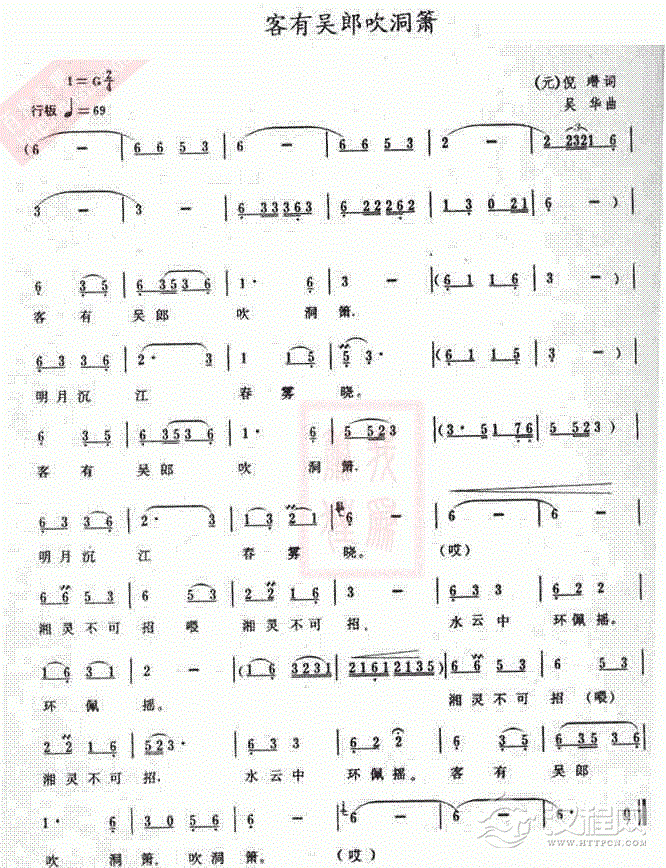 客有吴郎吹洞箫
1=G 2/4
(元)倪瓒词
行板 ♩=69
吴 华曲
(6 — | 6 6 5 3 | 6 — | 6 6 5 3 | 2 — | 2 2321 6 |
3 — | 3 — | 6 33363 | 6 22262 | 1 3 0 21 | 6 — ) |
6 3 5 | 6 353 6 | 1· 6 | 3 — | (6 1 1 6 | 3 — ) |
客 有 吴 郎 吹 洞 箫,
6 3 3 6 | 2· 3 | 1 1 5 | 5 3· | (6 1 1 5 | 3 — ) |
明月沉 江 春 雾 晓。
6 3 5 | 6 353 6 | 1· 6 | 5 523 | (3· 51 76 | 5 523 523) |
客 有 吴 郎 吹 洞 箫,
6 3 3 6 | 2· 3 | 1 3 2 1 | 6 — | 6 — | 6 — |
明月沉 江 春 雾 晓。 (哎)
6 6 5 3 | 6 5 3 | 2 2 1 6 | 3 — | 6 3 3 | 6 2 2 |
湘灵不可 招 喂 湘灵不可 招, 水云中 环佩摇。
1 6 3 1 | 2 — | (1 6 3231 | 21612135) | 6 6 5 3 | 6 5 3 |
环 佩 摇。 湘灵不可 招(喂)
2 2 1 6 | 523· | 6 3 3 | 6 2 2 | 6 3 5 | 6 353 6 |
湘灵不可 招, 水云中 环佩摇。 客 有 吴 郎
1· 6 | 3 0 5 6 | 6 — | 6 — | 6 — | 6 0 ‖
吹 洞 箫, 吹洞 箫。 (哎)
汉程网
WWW.HTTPCN.COM